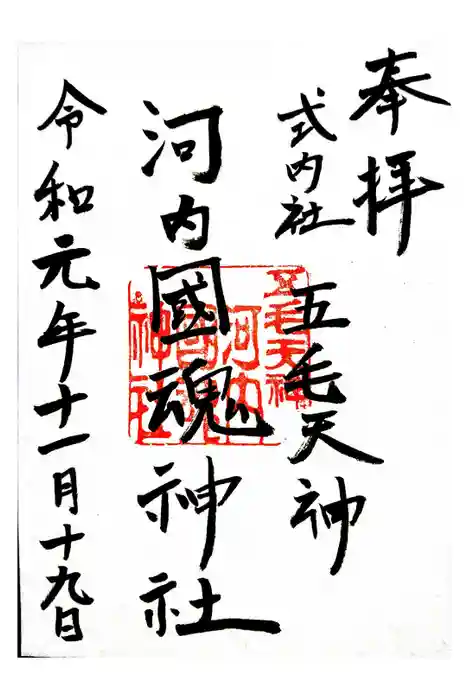 奉拝
式内社 五毛天神
河内國魂神社
令和元年十一月十九日
五毛天神
河内
國魂
神社